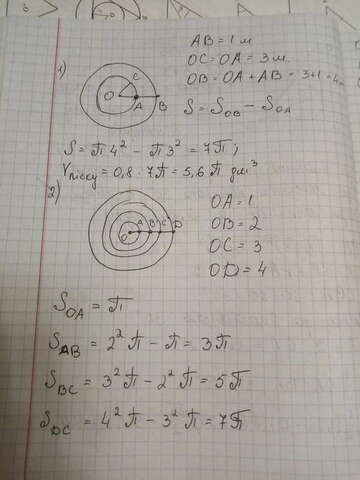 AB = 1 м
OC = OA = 3 м
OB = OA + AB = 3+1 = 4м
1)
O C A B
S = S_OB − S_OA
S = π 4² − π 3² = 7π ;
V піску = 0,8 · 7π = 5,6 π дм³
2)
O A B C D
OA = 1
OB = 2
OC = 3
OD = 4
S_OA = π
S_AB = 2²π − π = 3π
S_BC = 3²π − 2²π = 5π
S_DC = 4²π − 3²π = 7π